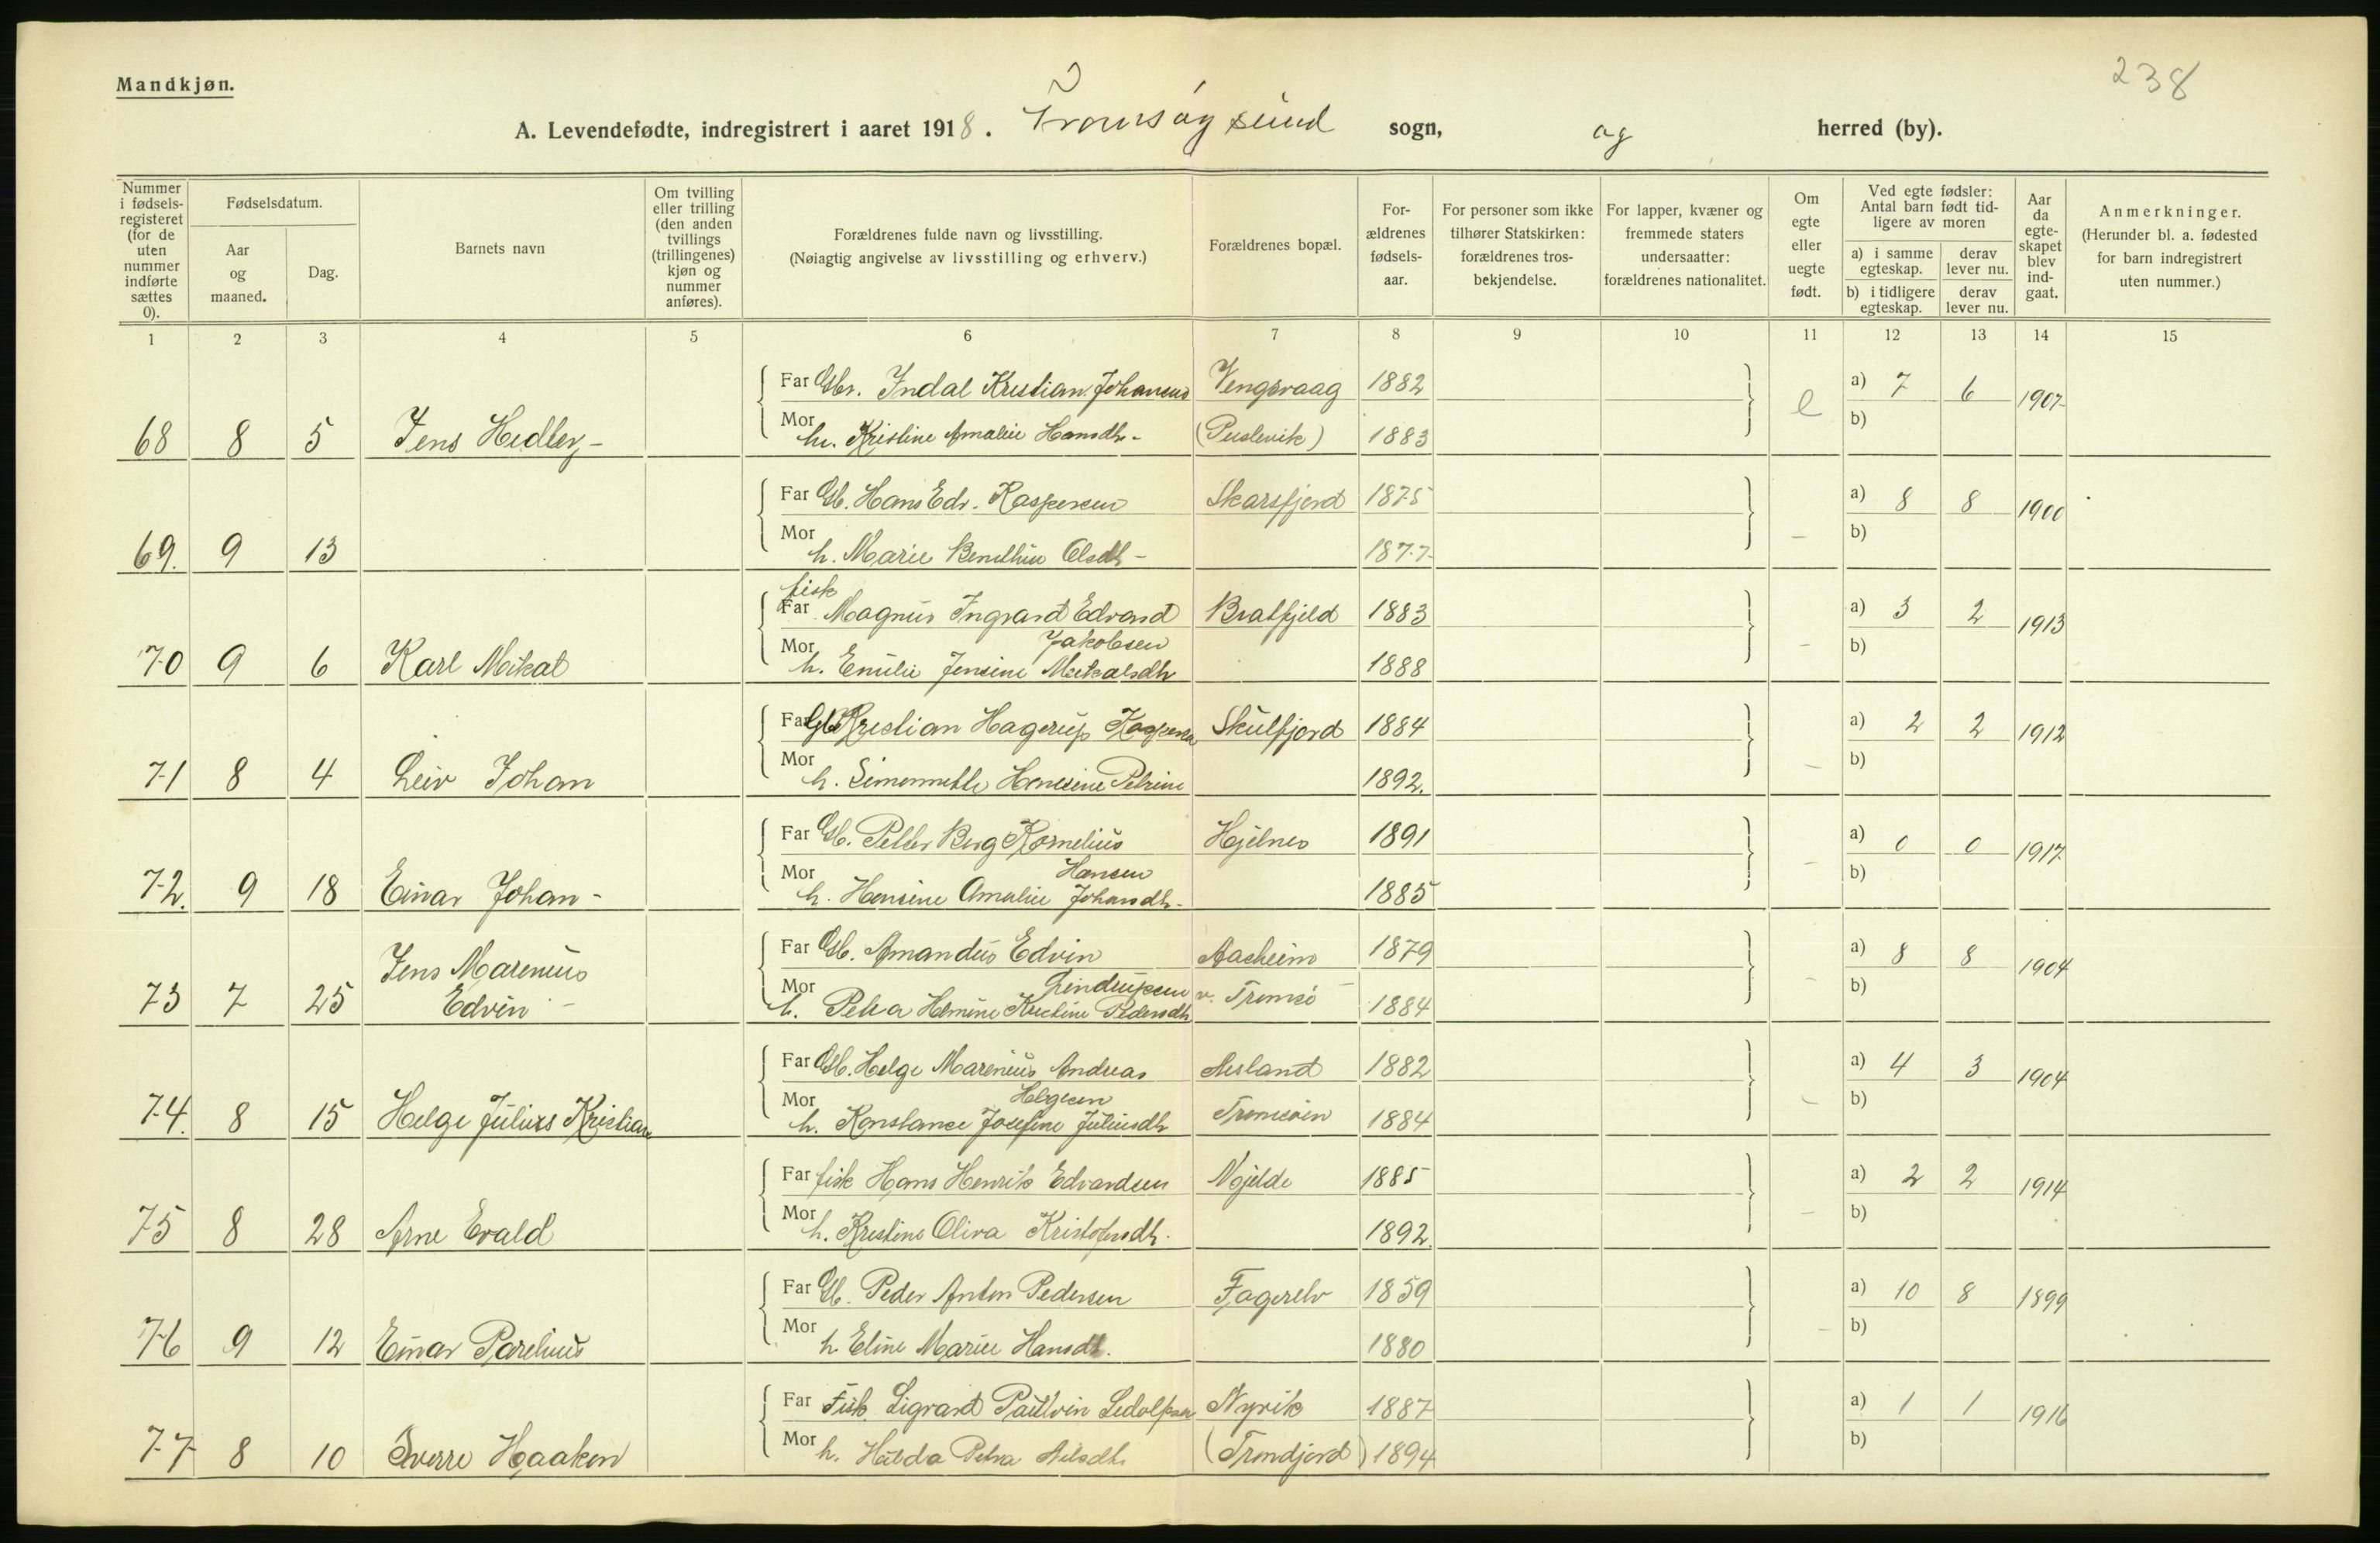 238
Mandkjøn.
A. Levendefødte, indregistrert i aaret 1918. Tromsøysund sogn, og herred (by).
Nummer i fødsels-registeret (for de uten nummer indførte sættes 0).
Fødselsdatum.
Aar og maaned.
Dag.
Barnets navn
Om tvilling eller trilling (den anden tvillings (trillingenes) kjøn og nummer anføres).
Forældrenes fulde navn og livsstilling.
(Nøiagtig angivelse av livsstilling og erhverv.)
Forældrenes bopæl.
For-ældrenes fødsels-aar.
For personer som ikke tilhører Statskirken: forældrenes tros-bekjendelse.
For lapper, kvæner og fremmede staters undersaatter: forældrenes nationalitet.
Om egte eller uegte født.
Ved egte fødsler: Antal barn født tid-ligere av moren
a) i samme egteskap.
derav lever nu.
b) i tidligere egteskap.
derav lever nu.
Aar da egte-skapet blev ind-gaat.
Anmerkninger.
(Herunder bl. a. fødested for barn indregistrert uten nummer.)
1 2 3 4 5 6 7 8 9 10 11 12 13 14 15
Far Gbr. Indal Kristian Johansen Vengsvaag 1882 a) 7 6 1907
68 8 5 Jens Hedley - Mor h. Kristine Amalie Hansdtr - 1883 e b)
Far Gb. Hans Edv. Kaspersen Skarsfjord 1875 a) 8 8 1900
69. 9 13 Mor h. Marie Olsdtr - 1877 - b)
fisk
Far Magnus Ingvard Edvard Bratfjeld 1883 a) 3 2 1913
Jakobsen
70 9 6 Karl Mikal Mor h. Emilie Jensine Mikalsdtr 1888 - b)
Far Gb Kristian Hagerup Kaspersen Skulfjord 1884 a) 2 2 1912
71 8 4 Leiv Johan Mor h. Hansine Petrine 1892. - b)
Far Gb. Petter Berg Kornelius Hjelnes 1891 a) 0 0 1917
Hansen
72. 9 18 Einar Johan - Mor h. Hansine Amalie Johansdtr - 1885 - b)
Far Gb. Amandus Edvin Aasheim 1879 a) 8 8 1904
Lindrupsen
73 7 25 Jens Marenius Edvin - Mor h. Petra Hemine Kristine Pedersdtr v. Tromsö 1884 - b)
Far Gb. Helge Marenius Andreas 1882 a) 4 3 1904
Helgesen
74. 8 15 Helge Julius Kristian Mor h. Konstance Josefine Juliusdtr Tromsöen 1884 - b)
Far fisk Hans Henrik Edvardsen Mjelde 1885 a) 2 2 1914
75 8 28 Arne Evald Mor h. Kristine Oliva Kristofersdtr. 1892. - b)
Far Gb. Peder Anton Pedersen Fagerelv 1859 a) 10 8 1899
76 9 12 Einar Parelius Mor h. Eline Marie Hansdt. 1880 - b)
Far Fisk. Sigvard Paulvin Sedolfsen Nyvik 1887 a) 1 1 1916
77 8 10 Sverre Haakon Mor h. Hilda Petra Nilsdtr (Tromdjord) 1894 b)